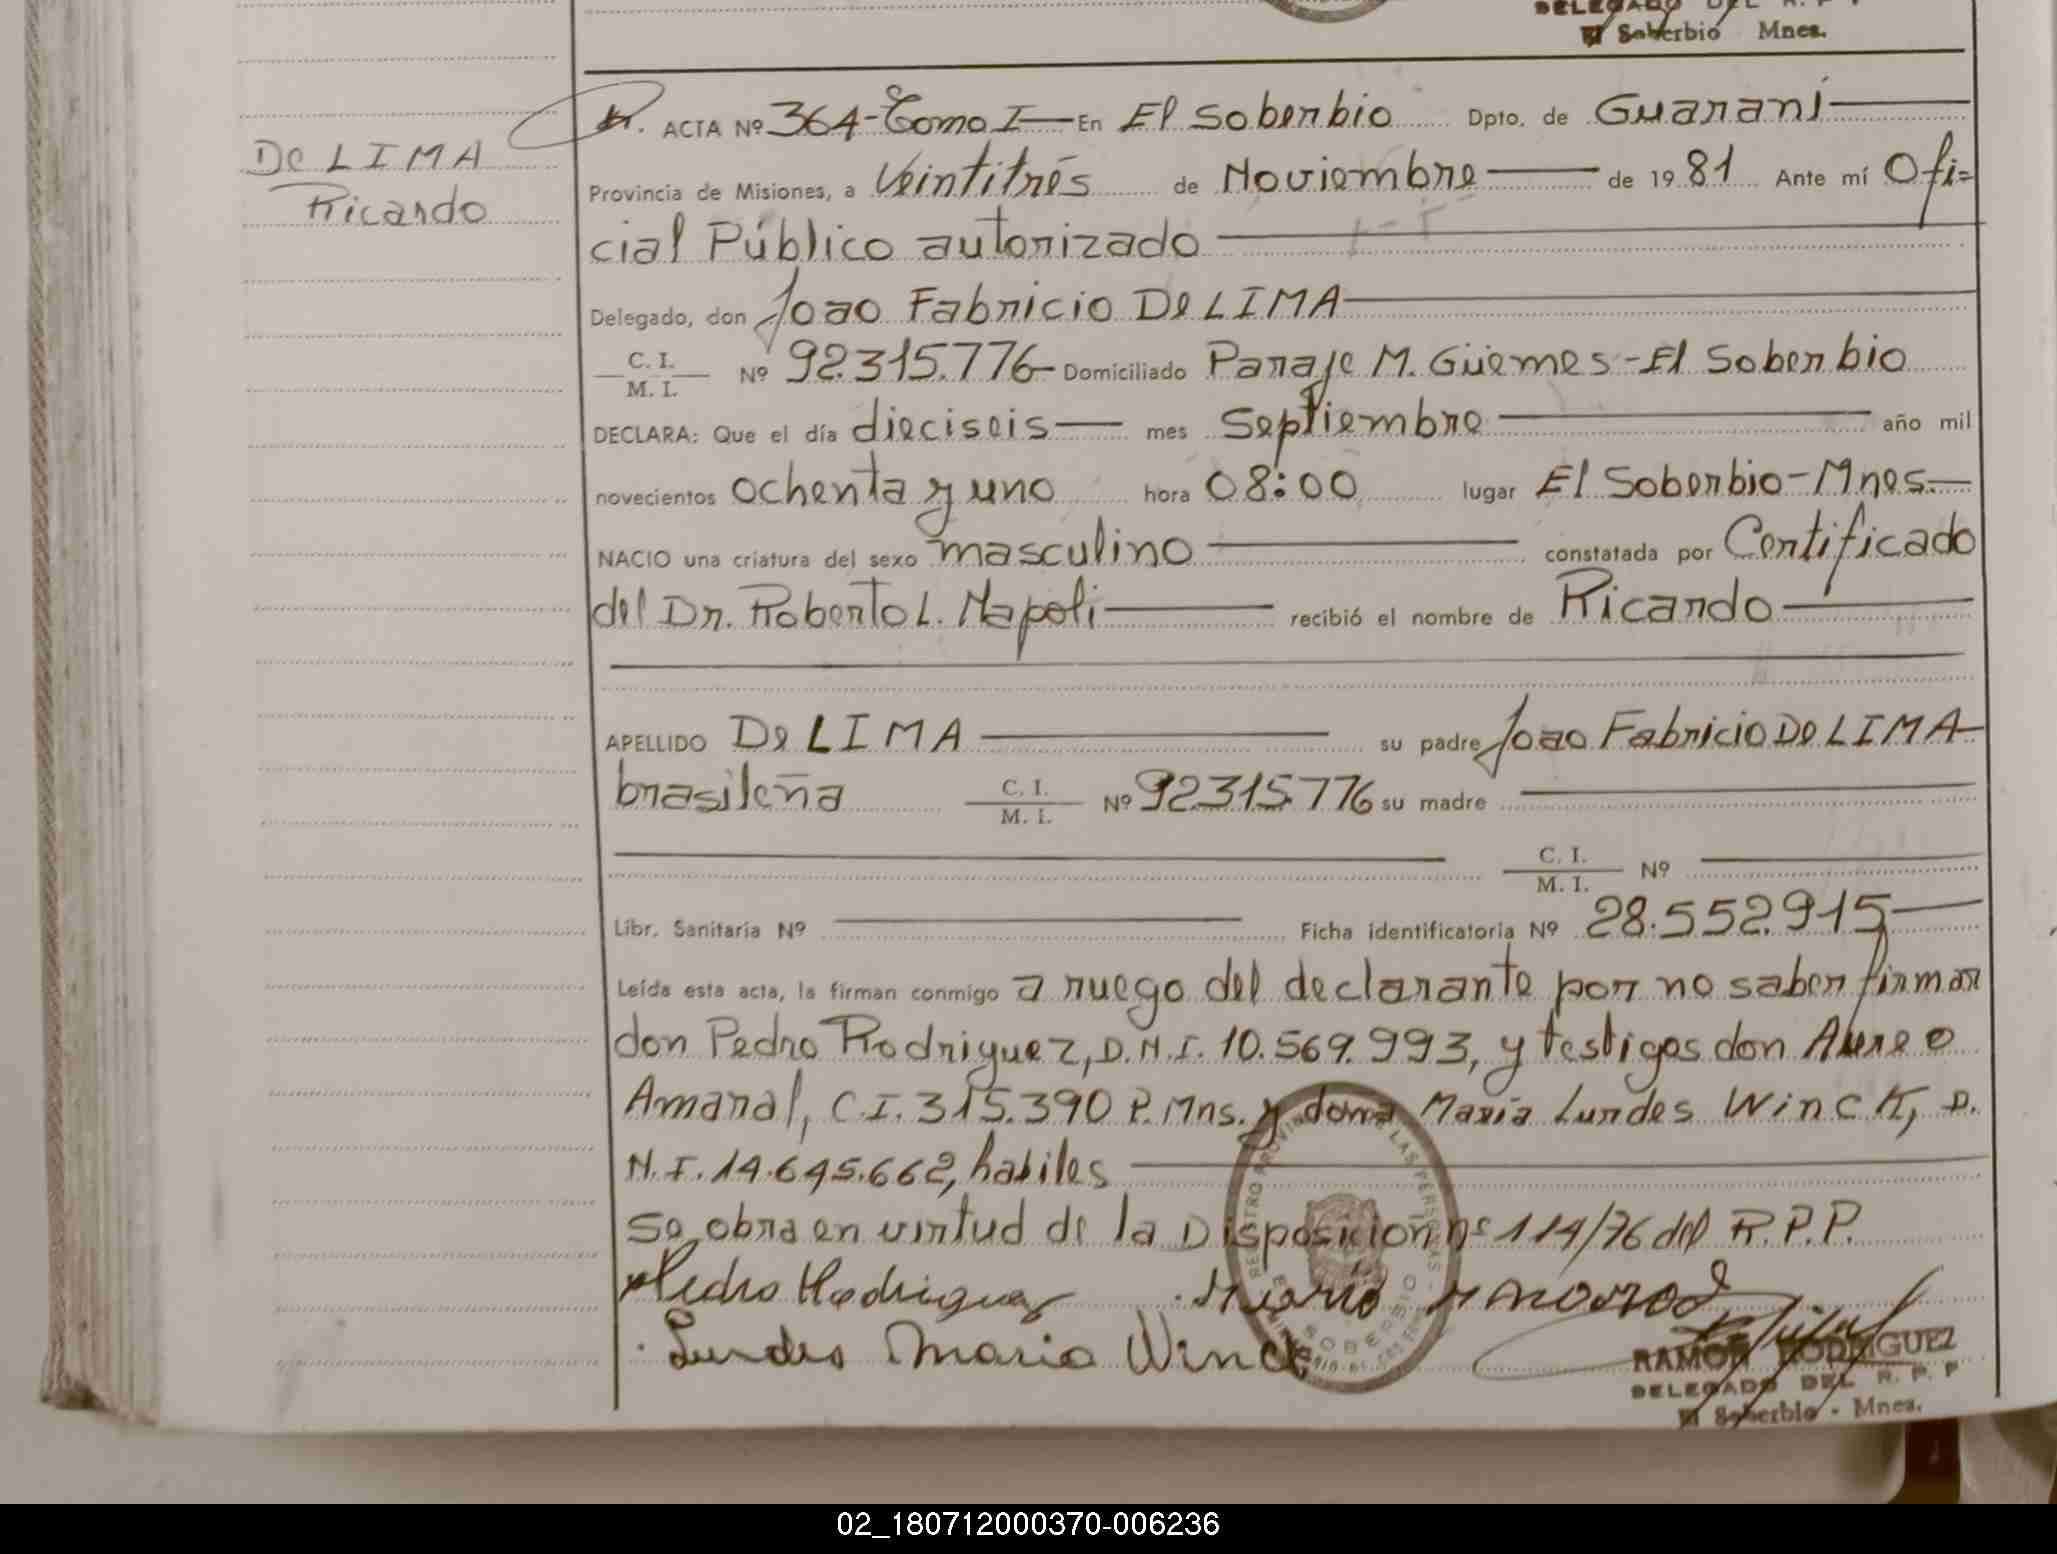 DELEGADO DEL R. P. P
El Soberbio Mnes.
De LIMA
Ricardo
ACTA Nº 364-Tomo I En El Soberbio Dpto. de Guaraní
Provincia de Misiones, a Veintitrés de Noviembre de 1981 Ante mí Ofi=
cial Público autorizado
Delegado, don Joao Fabricio De LIMA
C. I.
M. I. Nº 92.315.776 Domiciliado Paraje M. Güemes-El Soberbio
DECLARA: Que el día dieciseis mes Septiembre año mil
novecientos ochenta y uno hora 08:00 lugar El Soberbio-Mnes.
NACIO una criatura del sexo masculino constatada por Certificado
del Dr. Roberto L. Napoli recibió el nombre de Ricardo
APELLIDO De LIMA su padre Joao Fabricio De LIMA
brasileña C. I.
M. I. Nº 92.315.776 su madre
C. I.
M. I. Nº
Libr. Sanitaria Nº Ficha identificatoria Nº 28.552.915
Leída esta acta, la firman conmigo a ruego del declarante por no saber firmar
don Pedro Rodriguez, D.N.I. 10.569.993, y testigos don Aureo
Amaral, C.I. 315.390 P. Mns. y doña María Lurdes Winck, D.
N.I. 14.645.662, habiles
Se obra en virtud de la Disposicion nº 114/76 del R.P.P.
Pedro Rodriguez
Lurdes Maria Winck
REGISTRO PROVINCIAL DE LAS PERSONAS
SOBERBIO
RAMON RODRIGUEZ
DELEGADO DEL R. P. P
El Soberbio - Mnes.
02_180712000370-006236